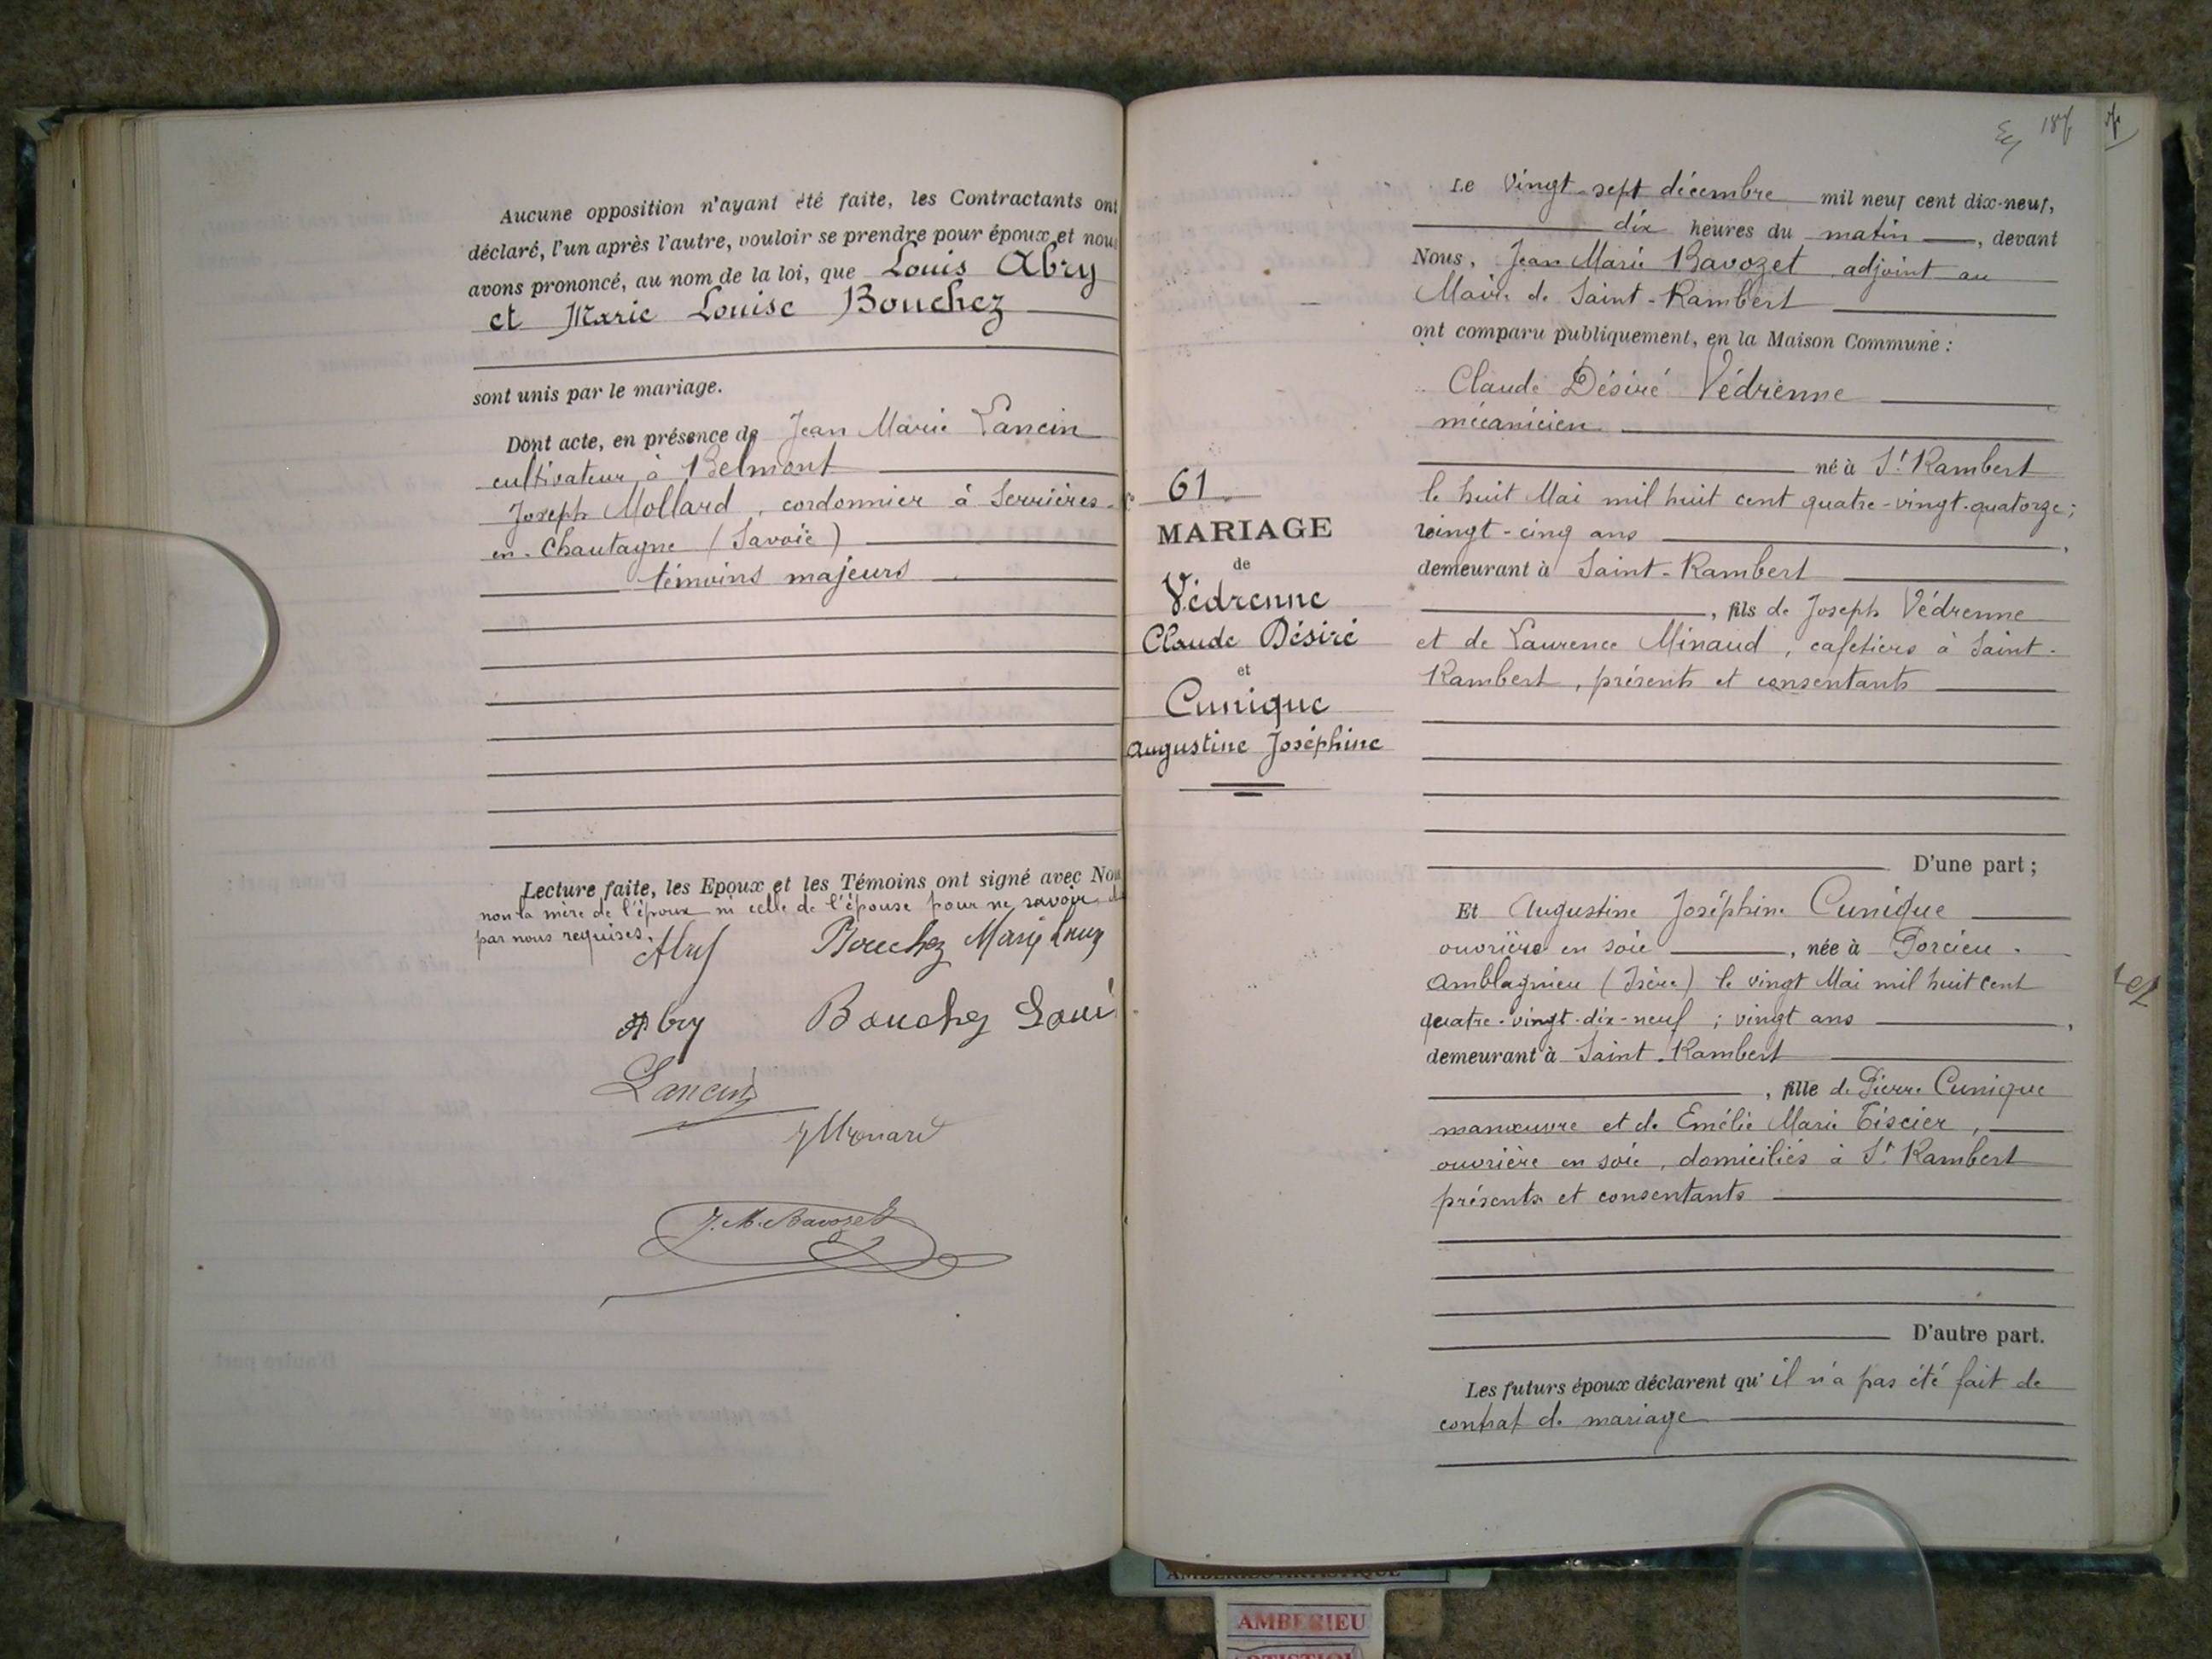 Aucune opposition n'ayant été faite, les Contractants ont
déclaré, l'un après l'autre, vouloir se prendre pour époux et nous
avons prononcé, au nom de la loi, que Louis Abry
et Marie Louise Bouchez
sont unis par le mariage.
Dont acte, en présence de Jean Marie Lancin
cultivateur à Belmont
Joseph Mollard, cordonnier à Serrières-
en-Chautagne (Savoie)
témoins majeurs
Lecture faite, les Epoux et les Témoins ont signé avec Nous
non la mère de l'époux ni celle de l'épouse pour ne savoir, de
par nous requises.
Abry Bouchez Marie Louise
Abry Bouchez Loui
Lancin
J. M. Bavozet
61
MARIAGE
de
Védrenne
Claude Désiré
et
Cunique
Augustine Joséphine
187
Le vingt-sept décembre mil neuf cent dix-neuf,
dix heures du matin, devant
Nous, Jean Marie Bavozet adjoint au
Maire de Saint-Rambert
ont comparu publiquement, en la Maison Commune :
Claude Désiré Védrenne
mécanicien
né à St Rambert
le huit Mai mil huit cent quatre-vingt-quatorze;
vingt-cinq ans,
demeurant à Saint-Rambert
, fils de Joseph Védrenne
et de Laurence Minaud, cafetiers à Saint-
Rambert, présents et consentants
D'une part ;
Et Augustine Joséphine Cunique
ouvrière en soie, née à Porcieu-
Amblagnieu (Isère) le vingt Mai mil huit cent
quatre-vingt-dix-neuf ; vingt ans,
demeurant à Saint-Rambert
, fille de Pierre Cunique
manœuvre et de Emélie Marie Tiscier,
ouvrière en soie, domiciliés à St Rambert
présents et consentants
D'autre part.
Les futurs époux déclarent qu'il n'a pas été fait de
contrat de mariage
AMBERIEU ARTISTIQUE
AMBERIEU